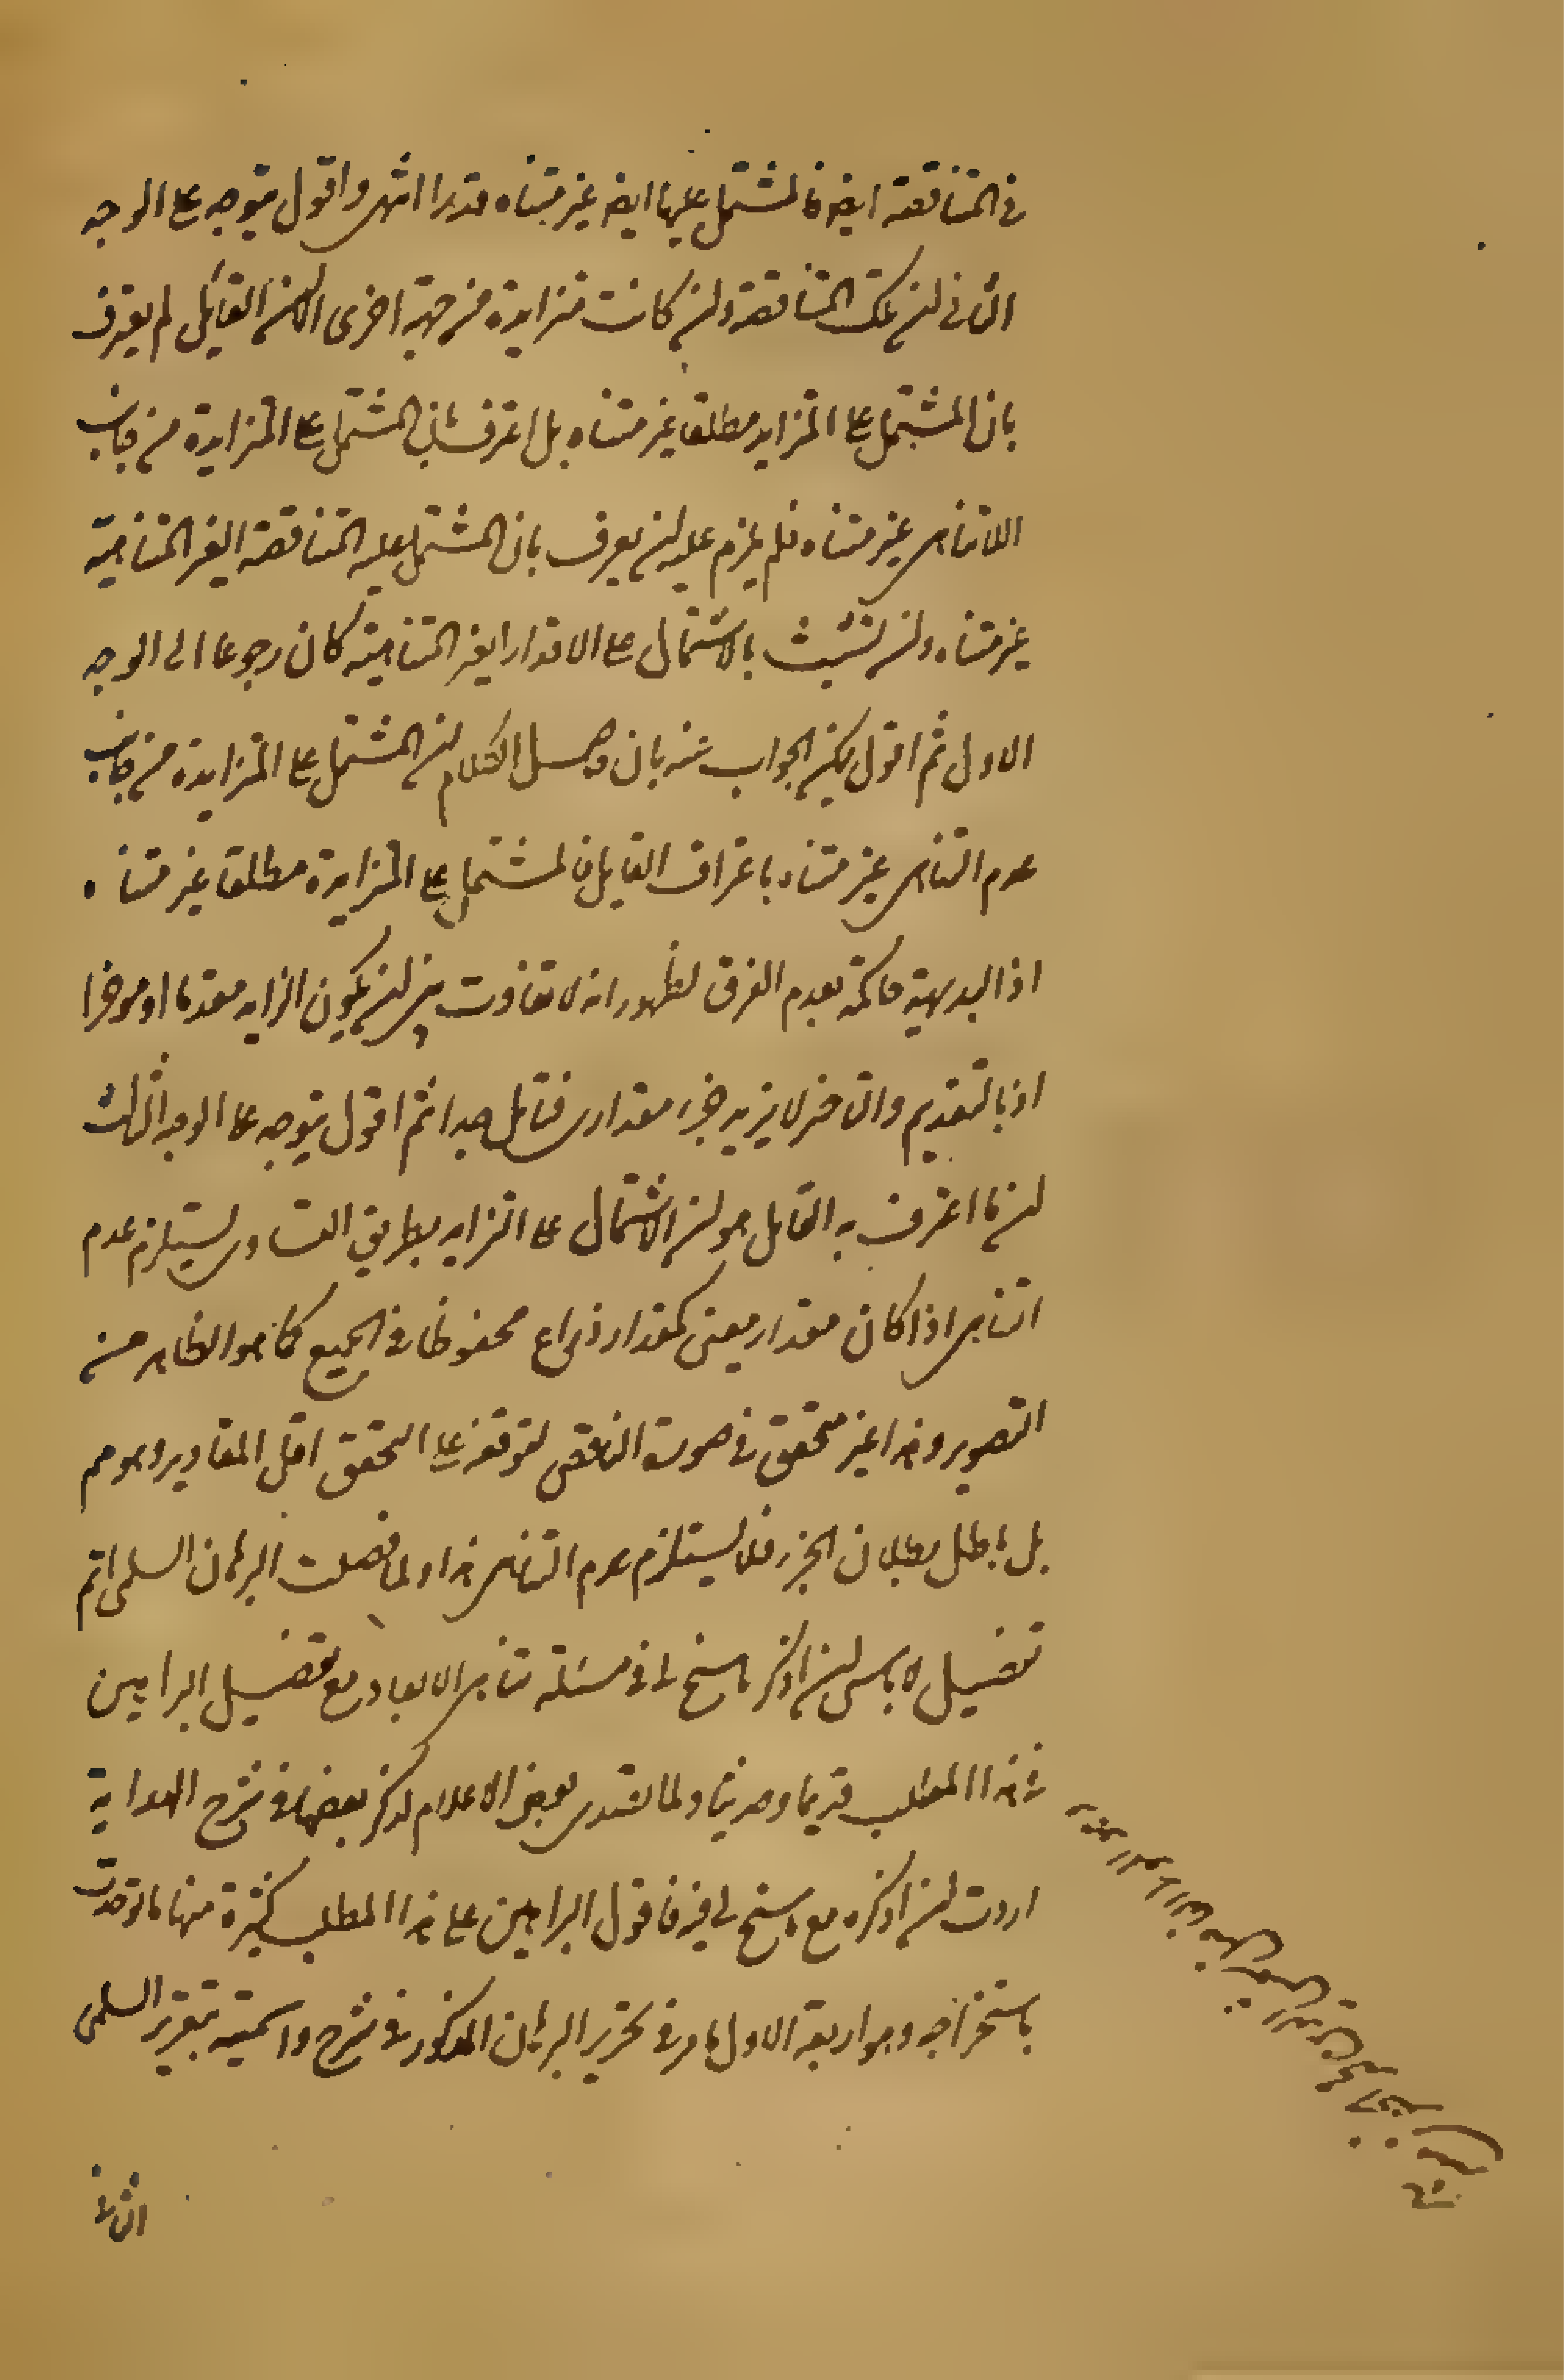 في المتناقصة ايضا فالمشتمل عليها ايضا غير متناه مقدارا انتهى واقول يتوجه على الوجه
الثاني ان تلك المتناقصة وان كانت متزايدة من جهة اخرى الا ان القائل لم يعترف
بان المشتمل على المتزايد مطلقا غير متناه بل اعترف بان المشتمل على المتزايدة من جانب
اللاتناهى غير متناه فلم يلزم عليه ان يعترف بان المشتمل عليه المتناقصة الغير المتناهية
غير متناه وان تشبث بالاشتمال على الاقدار الغير المتناهية كان رجوعا الى الوجه
الاول ثم اقول يمكن الجواب عنه بان حاصل الكلام ان المشتمل على المتزايدة من جانب
عدم التناهى غير متناه باعتراف القايل فالمشتمل على المتزايدة مطلقا غير متناه
اذ البديهية حاكمة بعدم الفرق لظهور انه لا تفاوت بين ان يكون الزايد مقدما او موخرا
اذ بالتقديم والتاخير لا يزيد جزء مقدارى فتامل جدا ثم اقول يتوجه على الوجه الثالث
ان ما اعترف به القايل هو ان الاشتمال على التزايد بطريق التساوى يستلزم عدم
التناهى اذا كان مقدار معين كمقدار ذراع محفوظا في الجميع كما هو الظاهر من
التصوير وهذا غير متحقق في صورة التناقص لتوقفه على التحقق اقل المقادير وهو مم
بل باطل بطلان الجزء فلا يستلزم عدم التناهى هذا ولما فصلت البرهان السلمى اتم
تفصيل لا باس ان اذكر ما سنح لى في مسئلة تناهى الابعاد مع تفصيل البراهين
في هذا المطلب قديما وحديثا ولما تصدى بعض الاعلام لذكر بعضها في شرح الهداية
اردت ان اذكره مع ما سنح لى فيه فاقول البراهين على هذا المطلب كثيرة منها ما توحدت
باستخراجه وهو اربعة الاول ما مر في تحرير البرهان المذكور في شرح واسميته بتقرير السلمى
الثاني